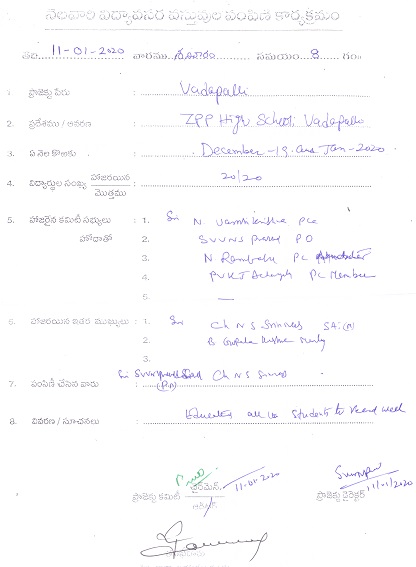 నెలవారి విద్యావసర వస్తువుల పంపిణి కార్యక్రమం
తేది. 11-01-2020 వారము శనివారం సమయం: 8 గం॥
1. ప్రాజెక్టు పేరు Vadapalli
2. ప్రదేశము / ఆవరణ ZPP High School: Vadapalli
3. ఏ నెల కొఱకు December-19 and Jan-2020
4. విద్యార్థుల సంఖ్య హాజరయిన / మొత్తము 20/20
5. హాజరైన కమిటీ సభ్యులు : 1. Sri N. Vamshi PCC
హోదాతో 2. SVVNS Prasad PO
3. N Rambabu PC
4. PVKT PC Member
5. —
6. హాజరయిన ఇతర ముఖ్యులు : 1. Sri Ch N S Srinivas SA(
2. B Gopala Krishna
3.
7. పంపిణీ చేసిన వారు Sri Ch N S
8. వివరణ / సూచనలు all the students to read well
ఛైర్మెన్ 11-01-2020
ప్రాజెక్టు కమిటీ
ప్రాజెక్టు డైరెక్టర్ 11/01/2020